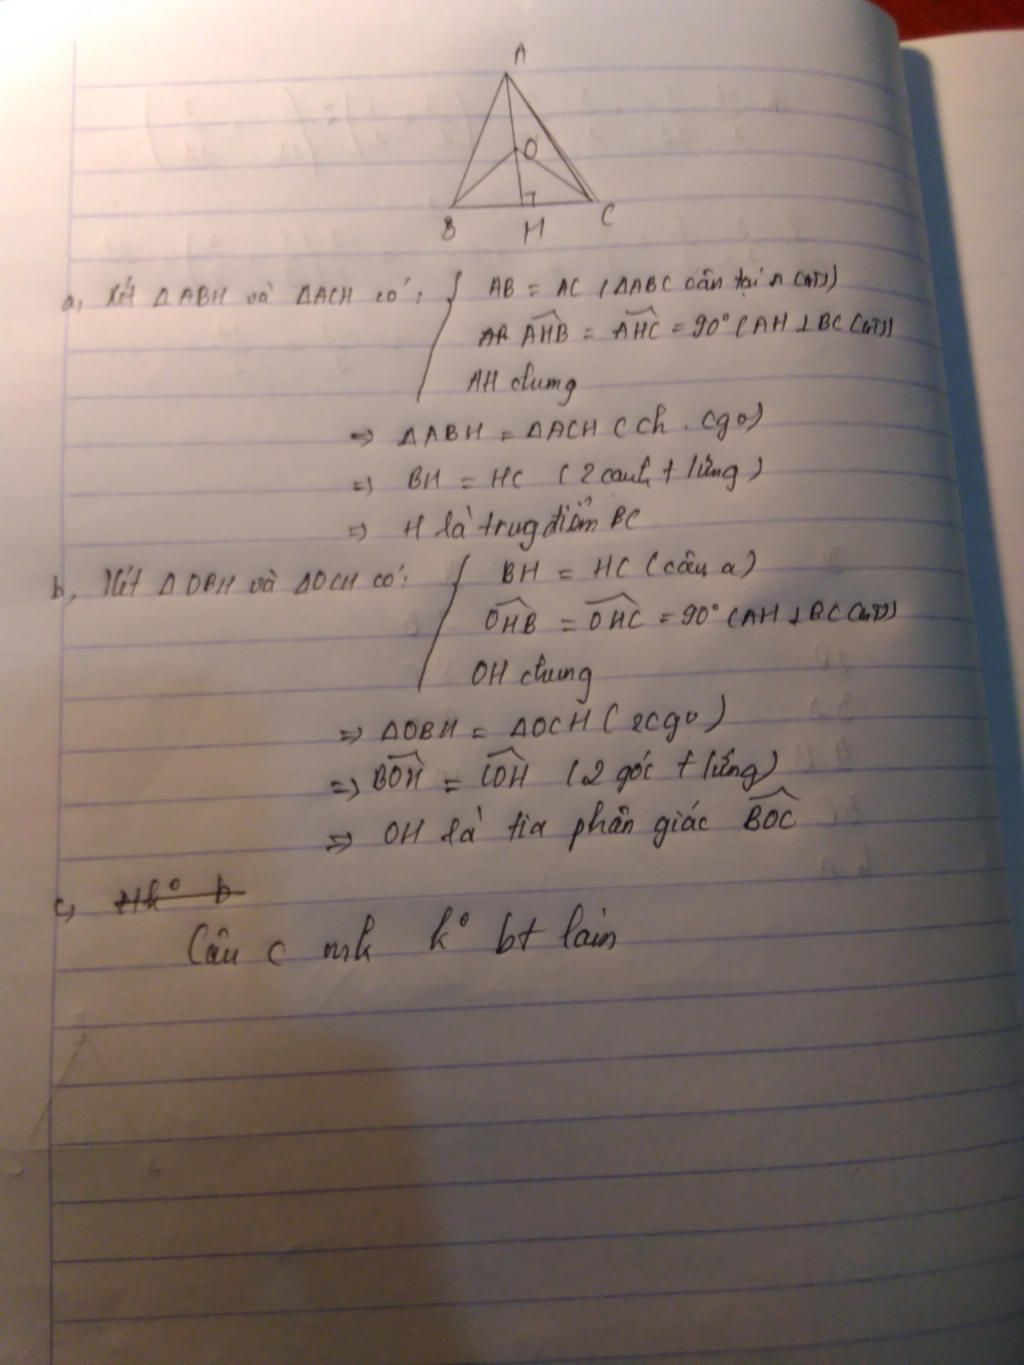 A
O
B
H
C
a, Xét ΔABH và ΔACH có: { AB = AC (ΔABC cân tại A (GT))
AHB = AHC = 90° (AH ⊥ BC (GT))
AH chung
=> ΔABH = ΔACH (ch . cgv)
=> BH = HC (2 cạnh t/ứng)
=> H là trug điểm BC
b, Xét ΔOBH và ΔOCH có: { BH = HC (câu a)
OHB = OHC = 90° (AH ⊥ BC (GT))
OH chung
=> ΔOBH = ΔOCH (2cgv)
=> BOH = COH (2 góc t/ứng)
=> OH là tia phân giác BOC
c,
Câu c mk k° bt làm